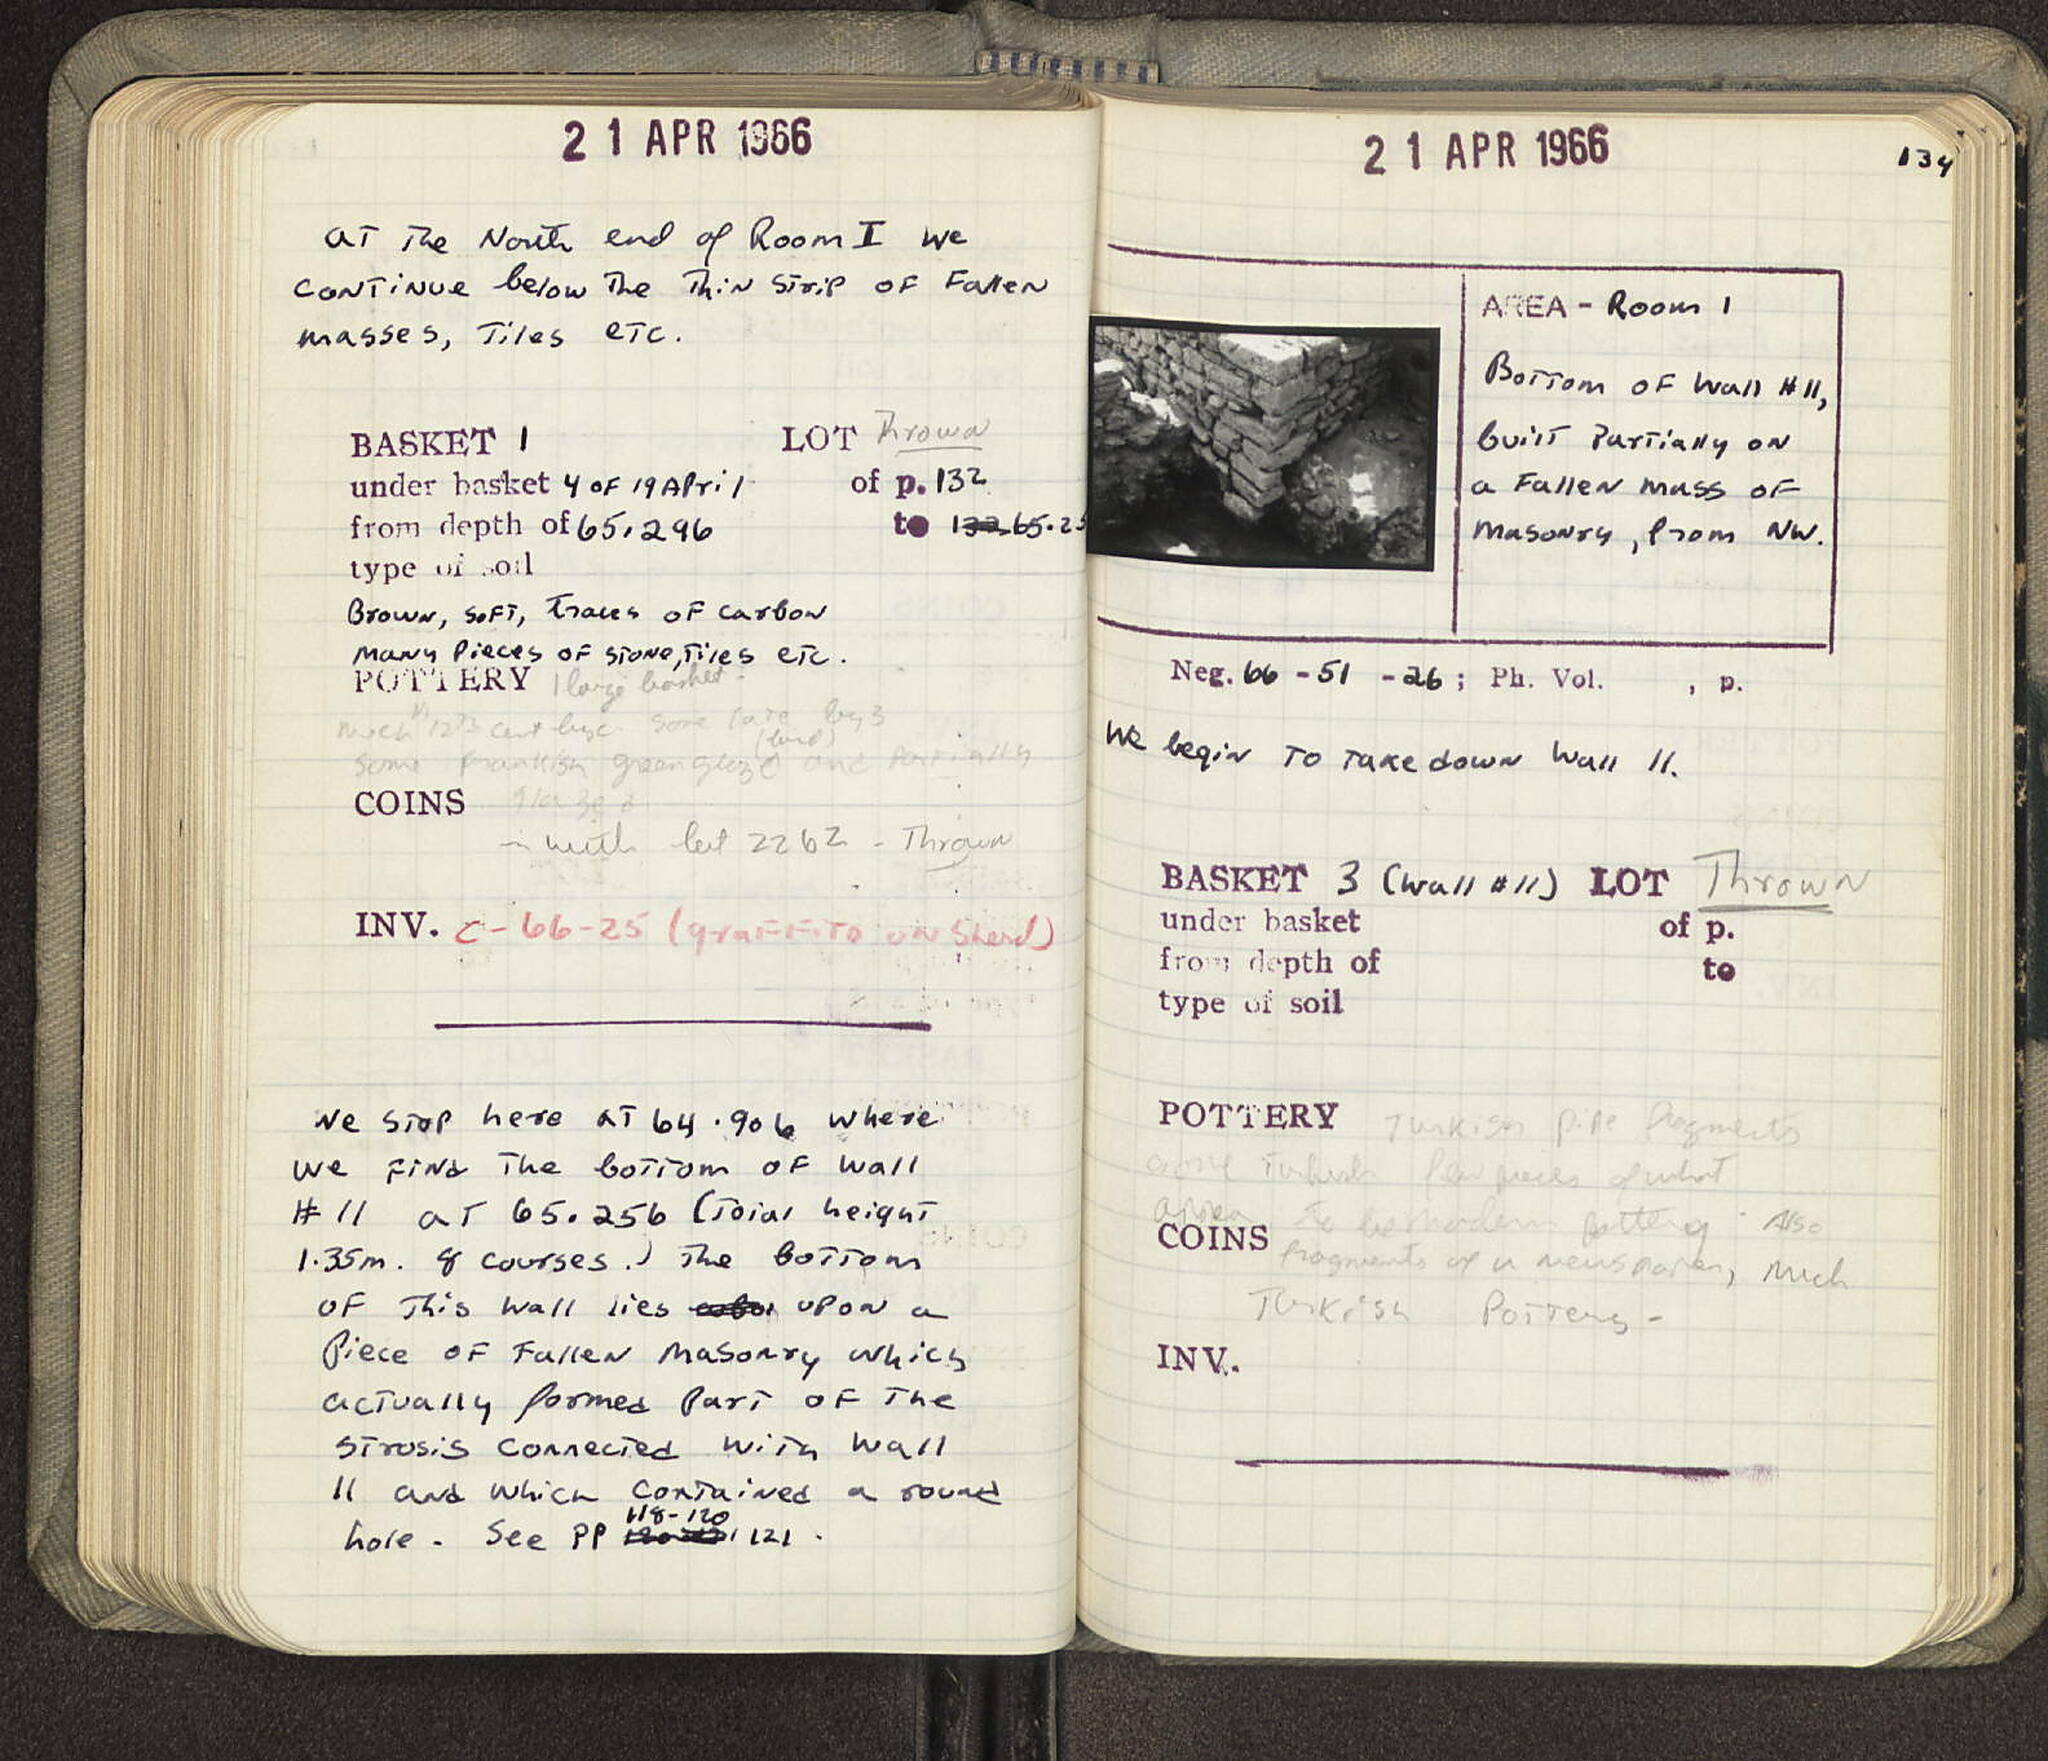 21 APR 1966
at the North end of Room I we
continue below the thin strip of fallen
masses, tiles etc.
BASKET 1 LOT Thrown
under basket 4 of 19 April of p. 132
from depth of 65.296 to 65.25
type of soil
Brown, soft, traces of carbon
many pieces of stone, tiles etc.
POTTERY 1 large basket.
much 12th cent byz. some late byz
(lard)
some Frankish green glazed and partially
COINS glazed
- with lot 2262 - Thrown
INV. C-66-25 (graffito on sherd)
We stop here at 64.906 where
we find the bottom of wall
#11 at 65.256 (Total height
1.35m. 8 courses.) The bottom
of this wall lies upon a
piece of fallen masonry which
actually formed part of the
strosis connected with wall
11 and which contained a round
118-120
hole. See PP 121.
21 APR 1966
134
AREA - Room 1
Bottom of wall #11,
built partially on
a fallen mass of
masonry, from NW.
Neg. 66 - 51 - 26; Ph. Vol. , p.
We begin to take down wall 11.
BASKET 3 (wall #11) LOT Thrown
under basket of p.
from depth of to
type of soil
POTTERY Turkish pipe fragments
Turkish few pieces of what
appear to be modern pottery. Also
COINS fragments of a newspaper, much
Turkish Pottery-
INV.